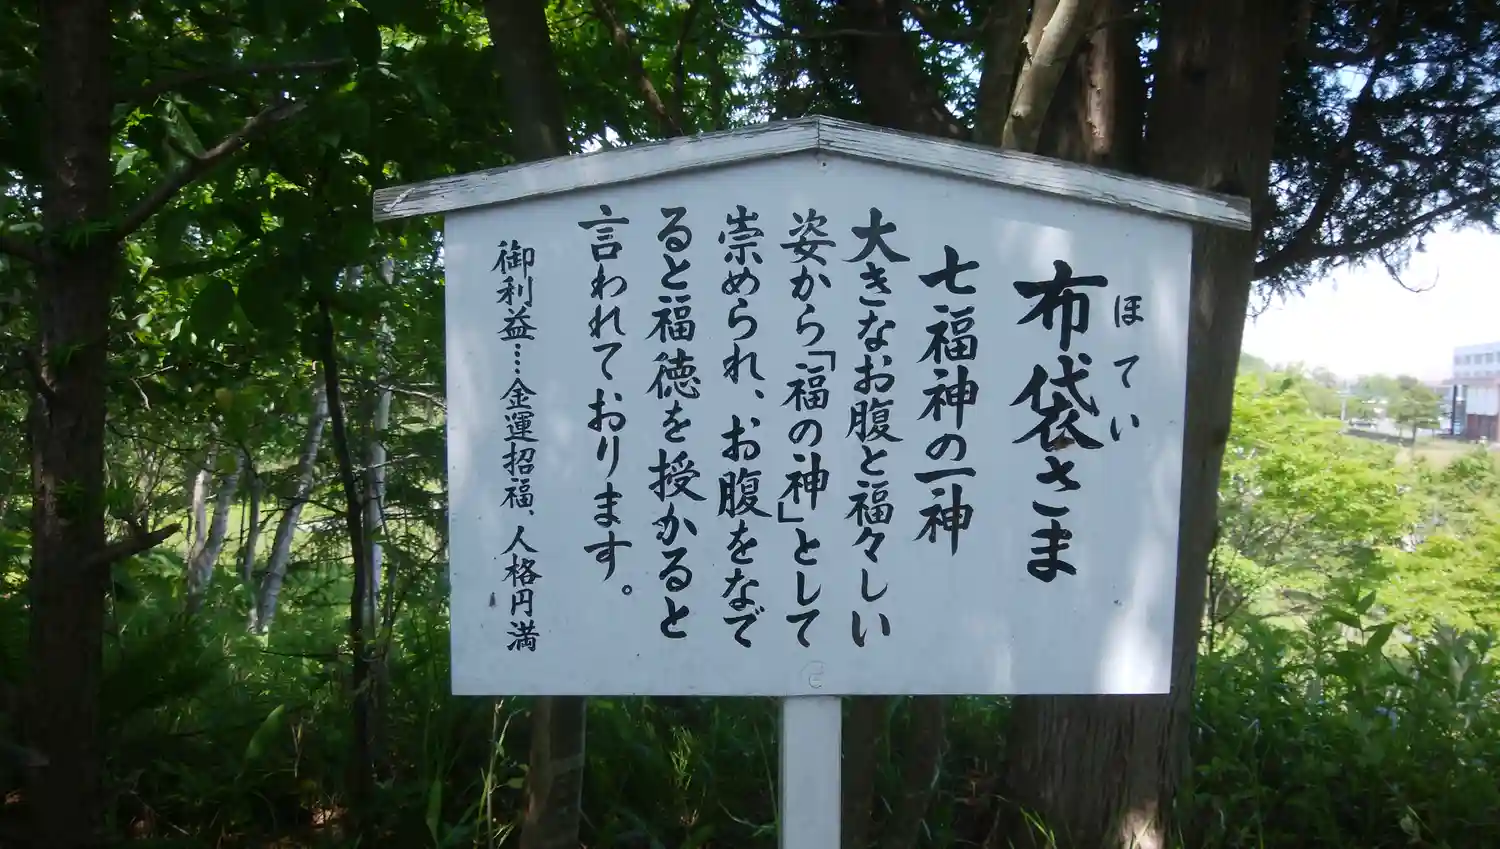 布袋さま
ほてい
七福神の一神
大きなお腹と福々しい
姿から「福の神」として
崇められ、お腹をなで
ると福徳を授かると
言われております。
御利益…金運招福、人格円満